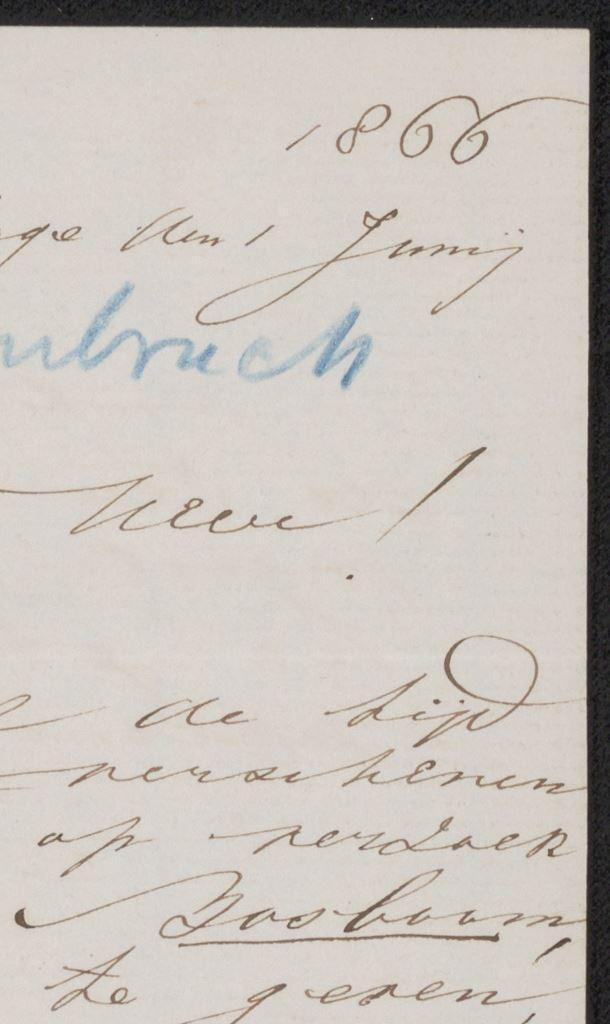 1866
age den 1 Junij
nbruch
Neve!
de tijd
verschenen
op verzoek
Bosboom,
te geven,